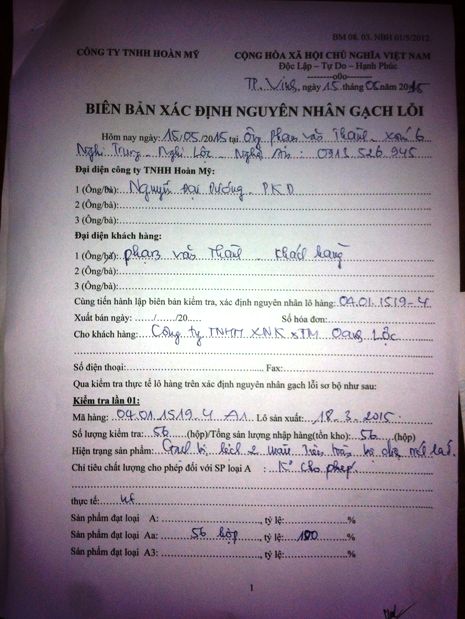 BM 08. 03. NBH 01/5/2012
CÔNG TY TNHH HOÀN MỸ CỘNG HÒA XÃ HỘI CHỦ NGHĨA VIỆT NAM
Độc Lập – Tự Do – Hạnh Phúc
---------o0o---------
TP. Vinh, ngày 15 tháng 05 năm 2015
BIÊN BẢN XÁC ĐỊNH NGUYÊN NHÂN GẠCH LỖI
Hôm nay ngày: 15/05/2015 tại Ông Phan văn Thành - xóm 6
Nghi Trung - Nghi Lộc - Nghệ An : 0913 526 945
Đại diện công ty TNHH Hoàn Mỹ:
1 (Ông/bà): Nguyễn Đại Dương. PKD
2 (Ông/bà):
3 (Ông/bà):
Đại diện khách hàng:
1 (Ông/bà): phạm văn Thành - khách hàng
2 (Ông/bà):
3 (Ông/bà):
Cùng tiến hành lập biên bản kiểm tra, xác định nguyên nhân lô hàng: 04.01.1519-4
Xuất bán ngày: ....../....../20..... Số hóa đơn:
Cho khách hàng: Công ty TNHH XNK & TM Oanh Lộc
Số điện thoại: Fax:
Qua kiểm tra thực tế lô hàng trên xác định nguyên nhân gạch lỗi sơ bộ như sau:
Kiểm tra lần 01:
Mã hàng: 04.01.1519.4 A1. Lô sản xuất: 18.3.2015.
Số lượng kiểm tra: 56 (hộp)/Tổng sản lượng nhập hàng(tồn kho): 56 (hộp)
Hiện trạng sản phẩm: Gạch bị lệch 2 màu trên
Chỉ tiêu chất lượng cho phép đối với SP loại A : Ko cho phép.
thực tế:
Sản phẩm đạt loại A: , tỷ lệ: %
Sản phẩm đạt loại Aa: 56 hộp, tỷ lệ: 100 %
Sản phẩm đạt loại A3: , tỷ lệ: %
1